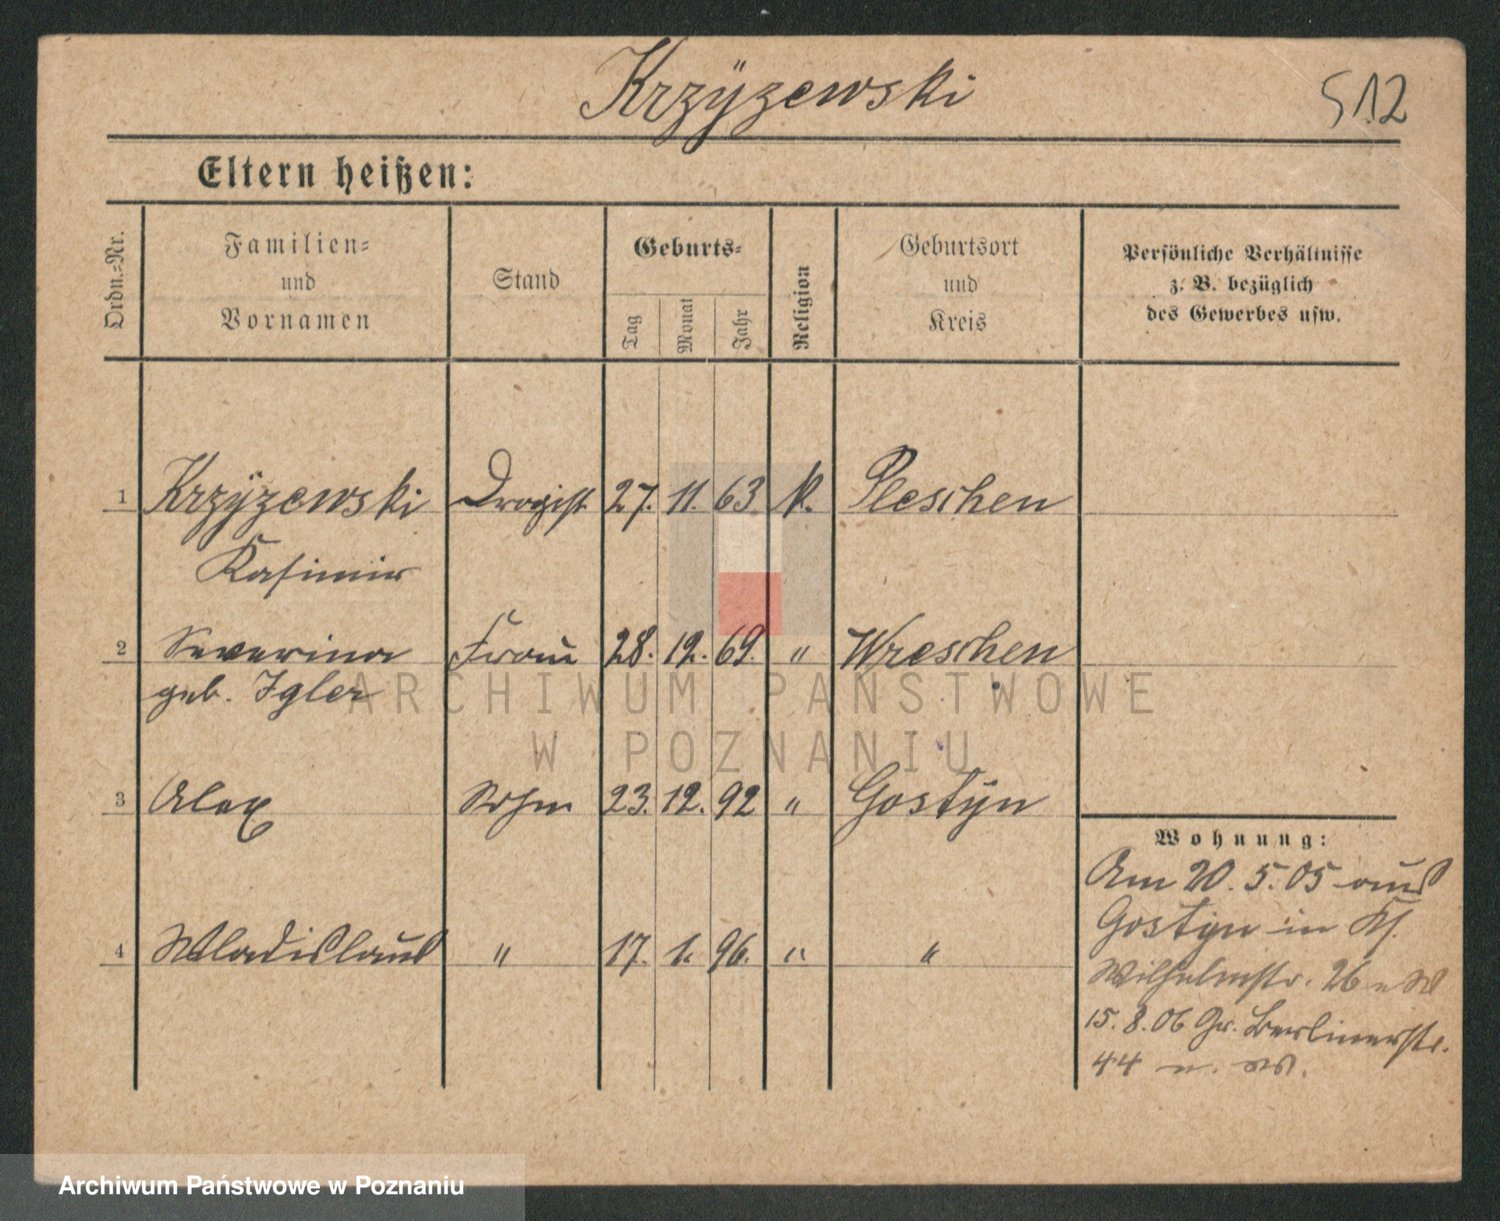 Krzÿzewski
512
Eltern heißen:
Ordn.=Nr.
Familien=
und
Vornamen
Stand
Geburts=
Tag
Monat
Jahr
Religion
Geburtsort
und
Kreis
Persönliche Verhältnisse
z. B. bezüglich
des Gewerbes usw.
1 Krzÿzewski Drogist 27. 11. 63 k. Pleschen
Kasimir
2 Severina Frau 28. 12. 69. " Wreschen
geb. Igler
ARCHIWUM PAŃSTWOWE
W POZNANIU
3 Alex Sohn 23. 12. 92 " Gostÿn
Wohnung:
Am 20. 5. 05 aus
Gostÿn in
4 Wladislaus " 17. 1. 96. " "
Wilhelmstr. 26
15. 8. 06 Gr. Berlinerstr.
44
Archiwum Państwowe w Poznaniu